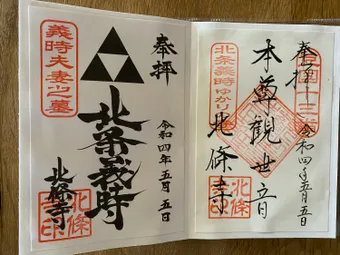 奉拝
登國十三番
北条義時ゆかりの寺
本尊観世音
北條寺
令和四年五月五日
北條寺印
奉拝
義時夫妻の墓
北条義時
令和四年五月五日
北條寺
北條寺印